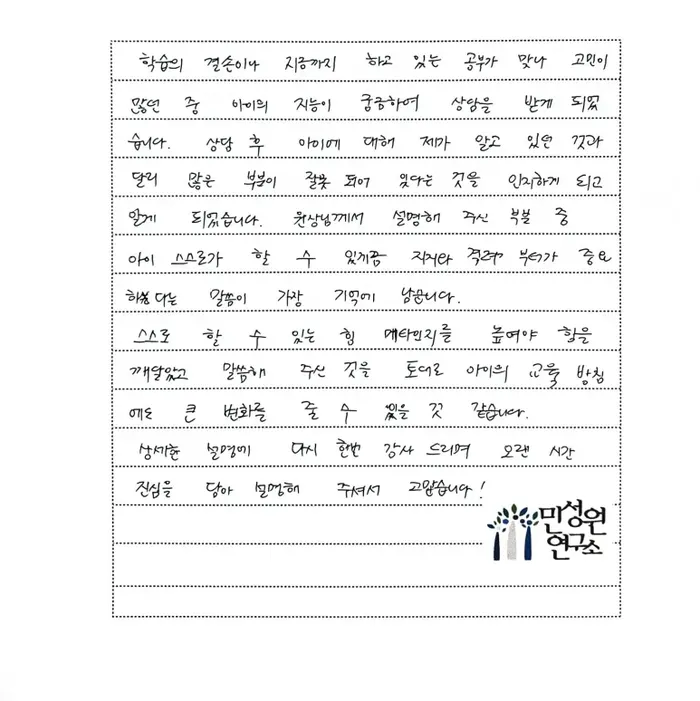 학습의 결손이나 지금까지 하고 있는 공부가 맞나 고민이
많던 중 아이의 지능이 궁금하여 상담을 받게 되었
습니다. 상담 후 아이에 대해 제가 알고 있던 것과
달리 많은 부분이 잘못 되어 있다는 것을 인지하게 되고
알게 되었습니다. 원장님께서 설명해 주신 부분 중
아이 스스로가 할 수 있게끔 지지와 격려 부터가 중요
하다는 말씀이 가장 기억에 남습니다.
스스로 할 수 있는 힘 메타인지를 높여야 함을
깨달았고 말씀해 주신 것을 토대로 아이의 교육 방침
에도 큰 변화를 줄 수 있을 것 같습니다.
상세한 설명에 다시 한번 감사 드리며 오랜 시간
진심을 담아 설명해 주셔서 고맙습니다!
민성원
연구소